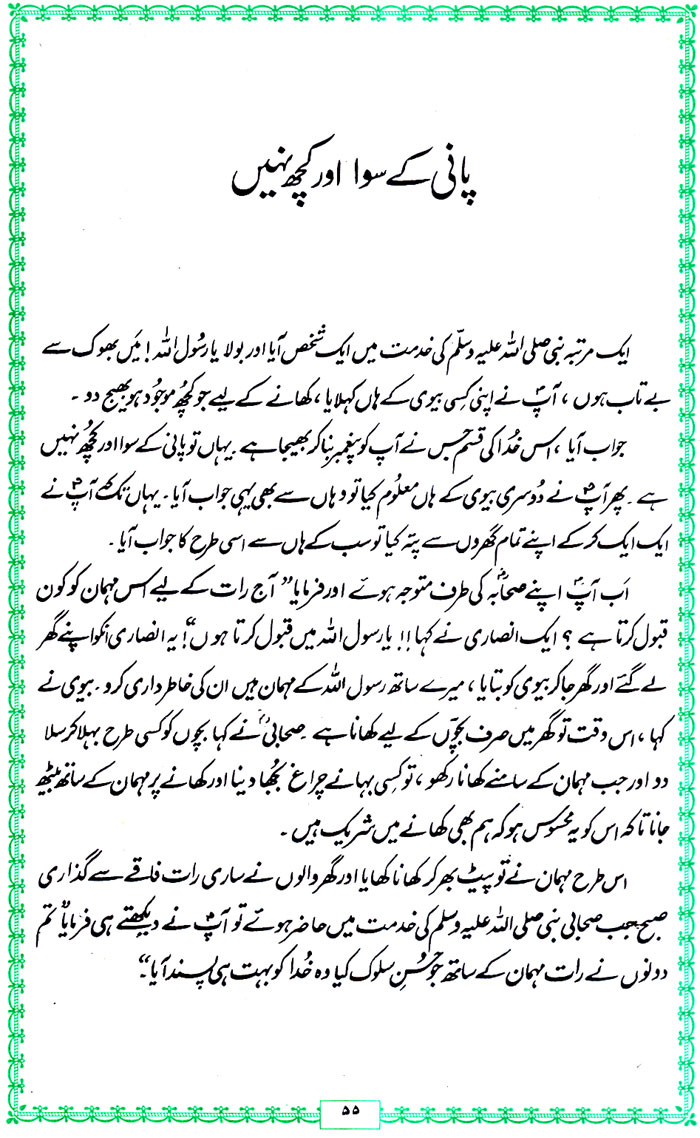 پانی کے سوا اور کچھ نہیں
ایک مرتبہ نبی صلی اللہ علیہ وسلّم کی خدمت میں ایک شخص آیا اور بولا یا رسُول اللہ ! میَں بھوک سے
بے تاب ہوں ، آپؐ نے اپنی کسی بیوی کے ہاں کہلایا ، کھانے کے لیے جو کچھُ موجُود ہو بھیج دو ۔
جواب آیا ، اس خُدا کی قسم جس نے آپ کو پیغمبر بنا کر بھیجا ہے ۔ یہاں تو پانی کے سوا اور کچھُ نہیں
ہے ۔ پھر آپؐ نے دُوسری بیوی کے ہاں معلُوم کیا تو وہاں سے بھی یہی جواب آیا ۔ یہاں تک کہ آپؐ نے
ایک ایک کر کے اپنے تمام گھروں سے پتہ کیا تو سب کے ہاں سے اسی طرح کا جواب آیا ۔
اَب آپؐ اپنے صحابہؓ کی طرف متوجہ ہوئے اور فرمایا ” آج رات کے لیے اس مہمان کو کون
قبول کرتا ہے ؟ ایک انصاری نے کہا !! یا رسول اللہ میں قبول کرتا ہوں “! یہ انصاری انکو اپنے گھر
لے گئے اور گھر جا کر بیوی کو بتایا ، میرے ساتھ رسول اللہ کے مہمان ہیں ان کی خاطر داری کرو ۔ بیوی نے
کہا ، اس وقت تو گھر میں صرف بچّوں کے لیے کھانا ہے ۔ صحابیؓ نے کہا بچّوں کو کسی طرح بہلا کر سلا
دو اور جب مہمان کے سامنے کھانا رکھو ، تو کسِی بہانے چراغ بجُھا دینا اور کھانے پر مہمان کے ساتھ بیٹھ
جانا تاکہ اس کو یہ محسُوس ہو کہ ہم بھی کھانے میں شریک ہیں ۔
اس طرح مہمان نے تو پیٹ بھر کر کھانا کھایا اور گھر والوں نے ساری رات فاقے سے گذاری
صبح جب صحابی نبی صلی اللہ علیہ وسلم کی خدمت میں حاضر ہوئے تو آپؐ نے دیکھتے ہی فرمایا ” تم
دونوں نے رات مہمان کے ساتھ جو حُسنِ سلوک کیا وہ خُدا کو بہت ہی پسند آیا “۔
۵۵